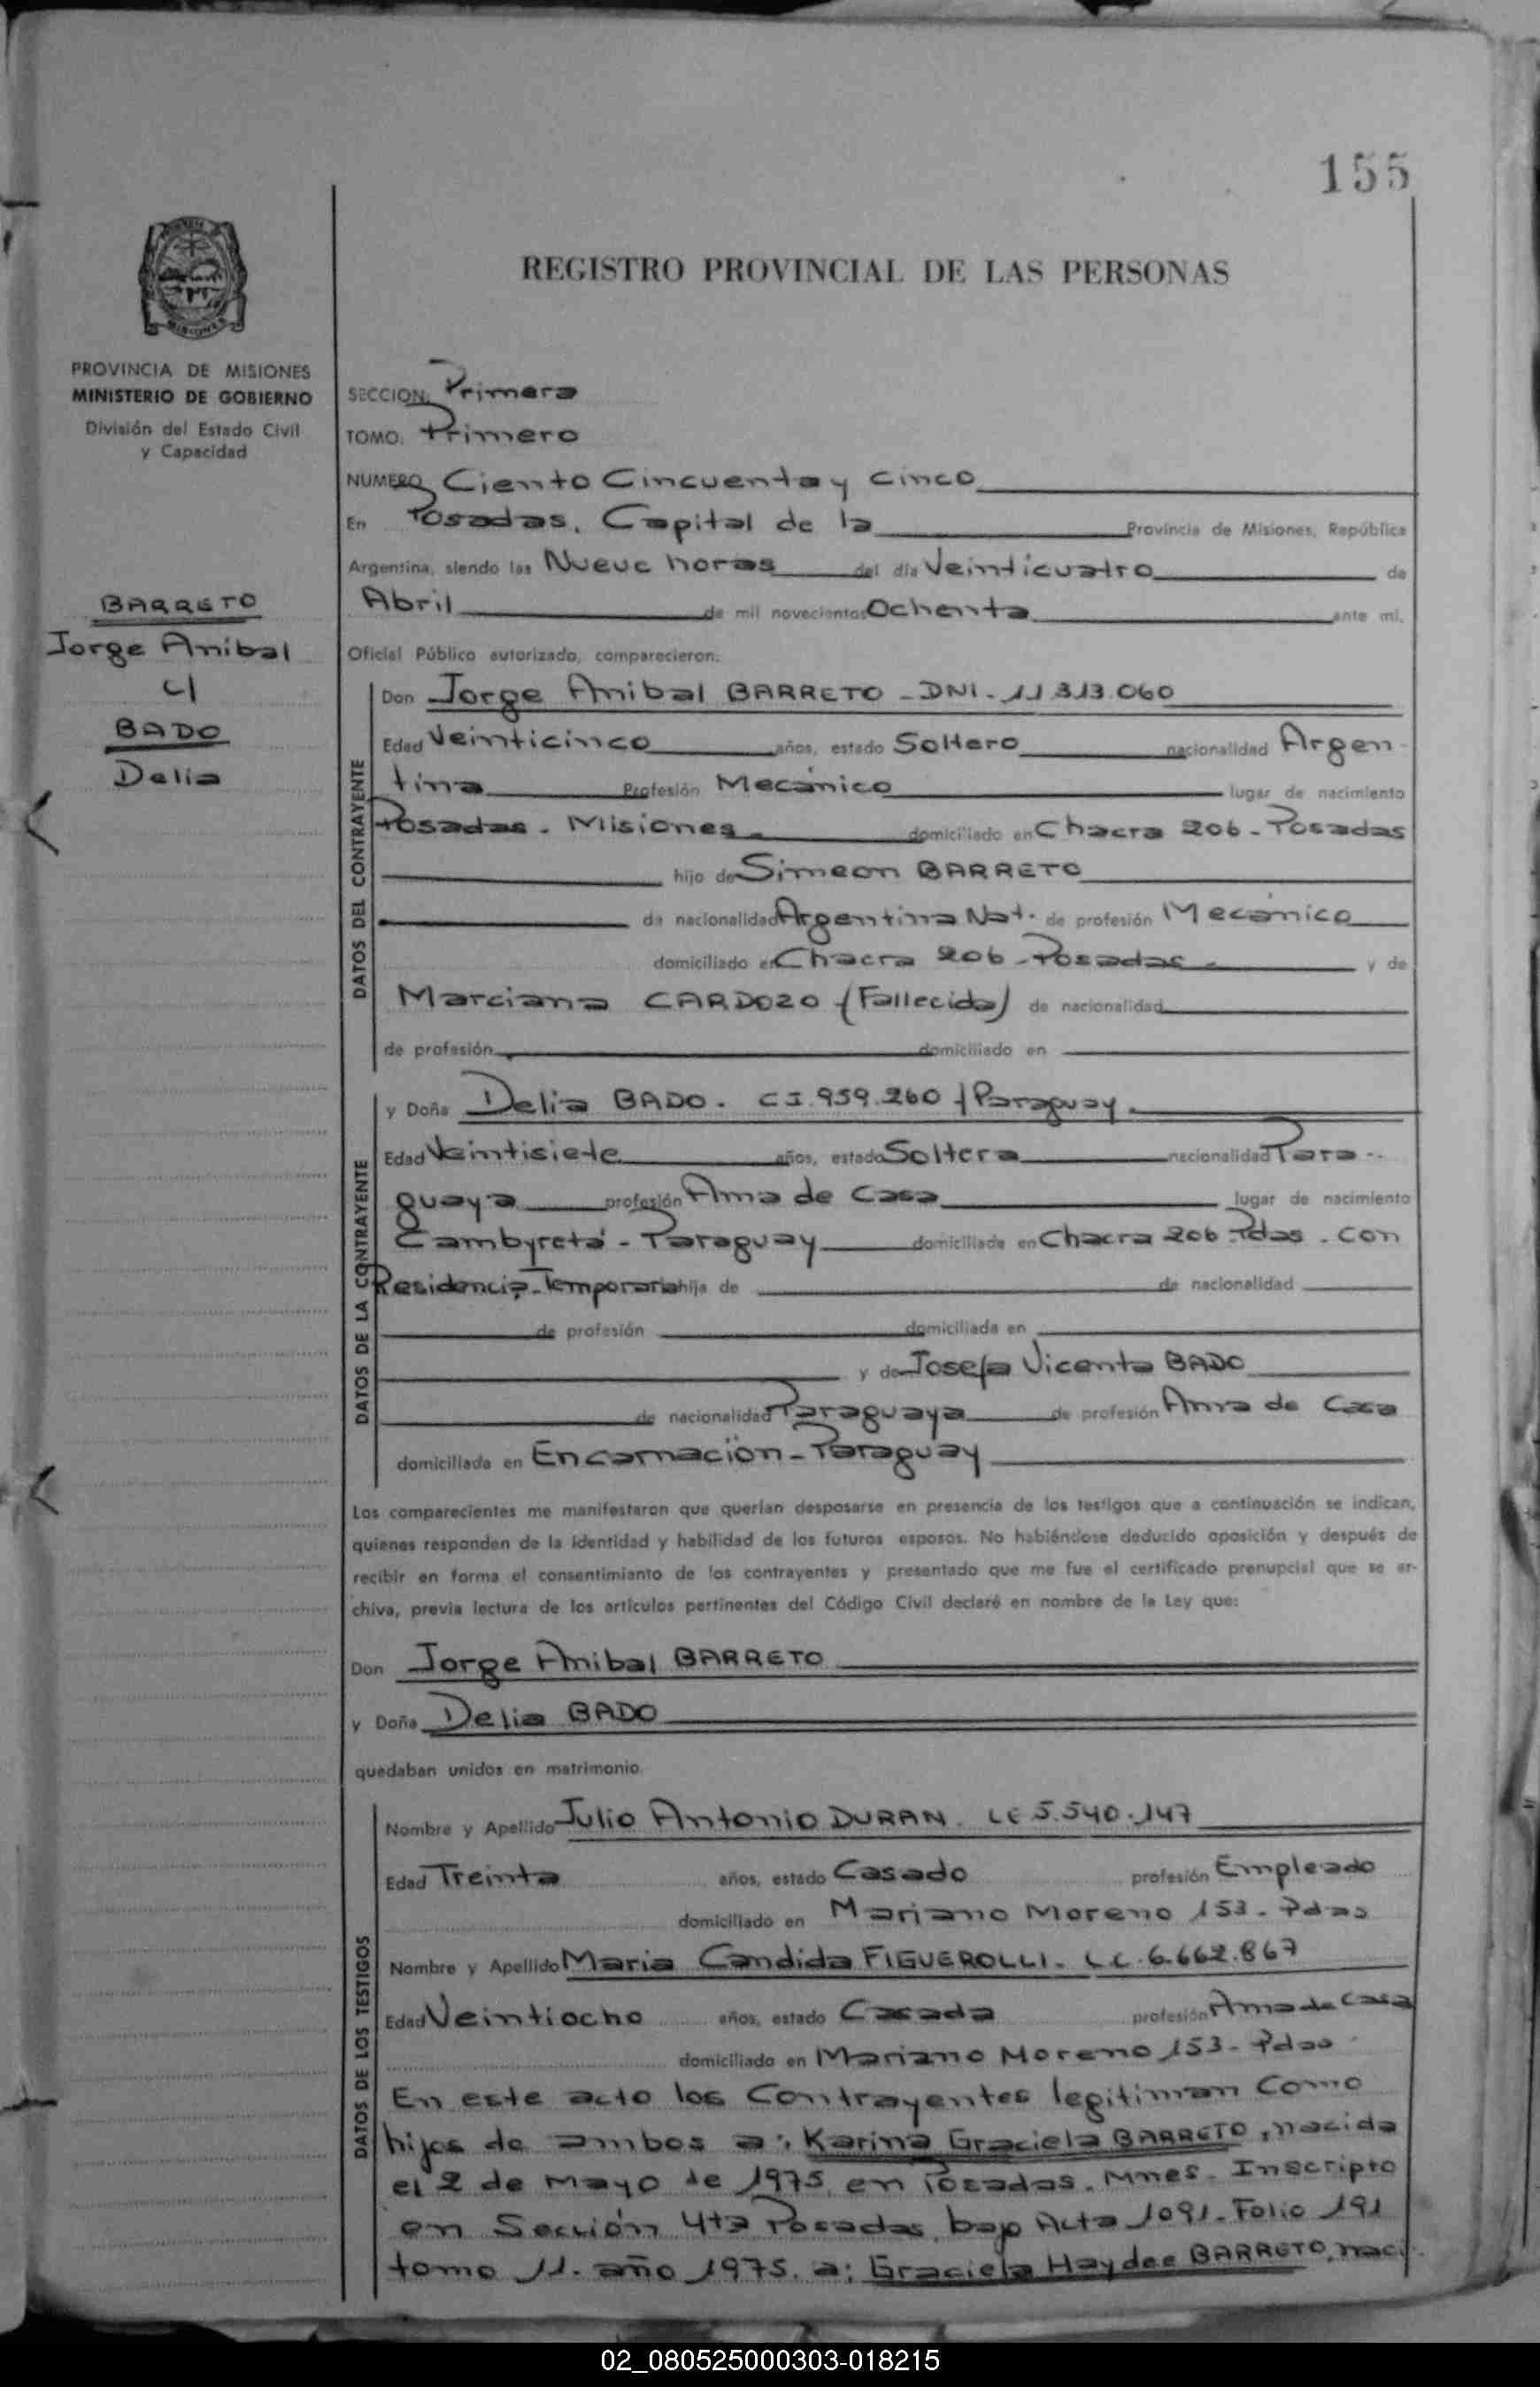 155
REGISTRO PROVINCIAL DE LAS PERSONAS
MISIONES
PROVINCIA DE MISIONES
MINISTERIO DE GOBIERNO
División del Estado Civil
y Capacidad
BARRETO
Jorge Anibal
c/
BADO
Delia
SECCION: Primera
TOMO: Primero
NUMERO Ciento Cincuenta y cinco
En Posadas, Capital de la Provincia de Misiones, República
Argentina, siendo las Nueve horas del día Veinticuatro de
Abril de mil novecientos Ochenta ante mí,
Oficial Público autorizado, comparecieron:
DATOS DEL CONTRAYENTE
Don Jorge Anibal BARRETO - DNI - 11.313.060
Edad Veinticinco años, estado Soltero nacionalidad Argen-
tina Profesión Mecánico lugar de nacimiento
Posadas - Misiones - domiciliado en Chacra 206 - Posadas
hijo de Simeon BARRETO
de nacionalidad Argentina Nat. de profesión Mecánico
domiciliado en Chacra 206 - Posadas - y de
Marciana CARDOZO (Fallecida) de nacionalidad
de profesión domiciliado en
DATOS DE LA CONTRAYENTE
y Doña Delia BADO - CI. 959.260 / Paraguay -
Edad Veintisiete años, estado Soltera nacionalidad Para-
guaya profesión Ama de Casa lugar de nacimiento
Cambyretá - Paraguay domiciliada en Chacra 206 - Pdas. con
Residencia Temporaria hija de de nacionalidad
de profesión domiciliada en
y de Josefa Vicenta BADO
de nacionalidad Paraguaya de profesión Ama de Casa
domiciliada en Encarnación - Paraguay
Los comparecientes me manifestaron que querían desposarse en presencia de los testigos que a continuación se indican,
quienes responden de la identidad y habilidad de los futuros esposos. No habiéndose deducido oposición y después de
recibir en forma el consentimiento de los contrayentes y presentado que me fue el certificado prenupcial que se ar-
chiva, previa lectura de los artículos pertinentes del Código Civil declaré en nombre de la Ley que:
Don Jorge Anibal BARRETO
y Doña Delia BADO
quedaban unidos en matrimonio.
DATOS DE LOS TESTIGOS
Nombre y Apellido Julio Antonio DURAN - LE 5.540.147
Edad Treinta años, estado Casado profesión Empleado
domiciliado en Mariano Moreno 153 - Pdas
Nombre y Apellido Maria Candida FIGUEROLLI - L.C. 6.662.867
Edad Veintiocho años, estado Casada profesión Ama de Casa
domiciliado en Mariano Moreno 153 - Pdas
En este acto los Contrayentes legitiman como
hijos de ambos a: Karina Graciela BARRETO, nacida
el 2 de Mayo de 1975, en Posadas, Mnes. Inscripto
en Sección 4ta Posadas, bajo Acta 1091 - Folio 191
tomo 11. año 1975. a: Graciela Haydee BARRETO, naci
02_080525000303-018215